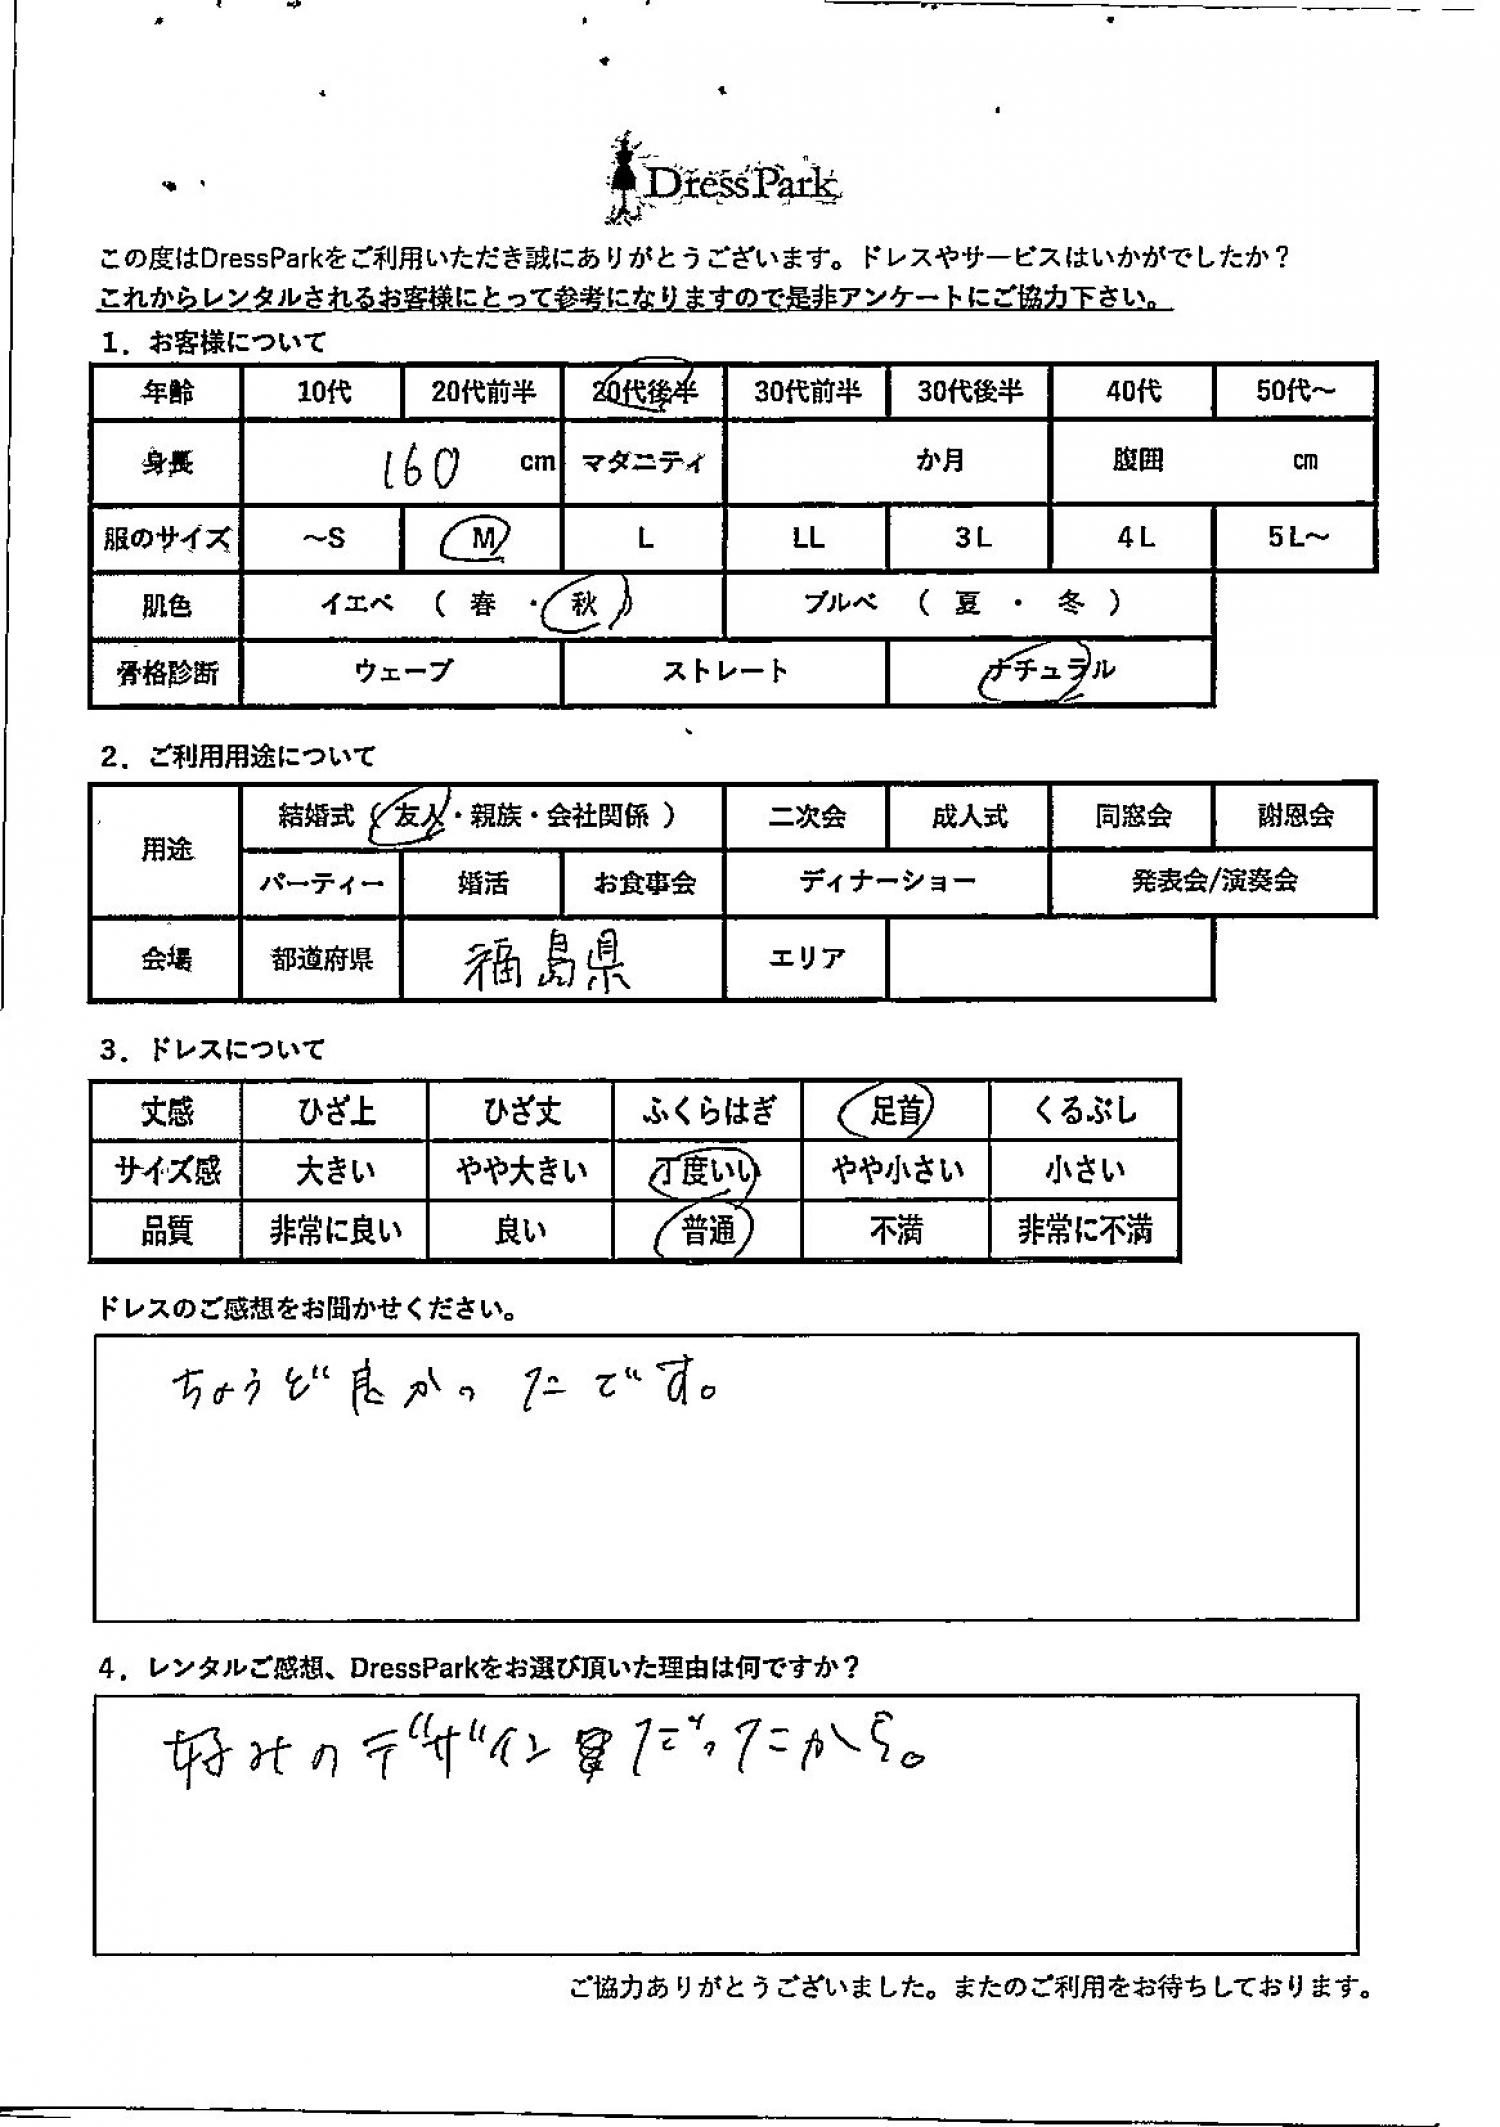 DressPark
この度はDressParkをご利用いただき誠にありがとうございます。ドレスやサービスはいかがでしたか？
これからレンタルされるお客様にとって参考になりますので是非アンケートにご協力下さい。
1．お客様について
年齢 10代 20代前半 20代後半 30代前半 30代後半 40代 50代～
身長 160 cm マタニティ か月 腹囲 cm
服のサイズ ～S M L LL 3L 4L 5L～
肌色 イエベ （ 春 ・ 秋 ） ブルベ （ 夏 ・ 冬 ）
骨格診断 ウェーブ ストレート ナチュラル
2．ご利用用途について
用途 結婚式（ 友人・親族・会社関係 ） 二次会 成人式 同窓会 謝恩会
パーティー 婚活 お食事会 ディナーショー 発表会/演奏会
会場 都道府県 福島県 エリア
3．ドレスについて
丈感 ひざ上 ひざ丈 ふくらはぎ 足首 くるぶし
サイズ感 大きい やや大きい 丁度いい やや小さい 小さい
品質 非常に良い 良い 普通 不満 非常に不満
ドレスのご感想をお聞かせください。
ちょうど良かったです。
4．レンタルご感想、DressParkをお選び頂いた理由は何ですか？
好みのデザインだったから。
ご協力ありがとうございました。またのご利用をお待ちしております。